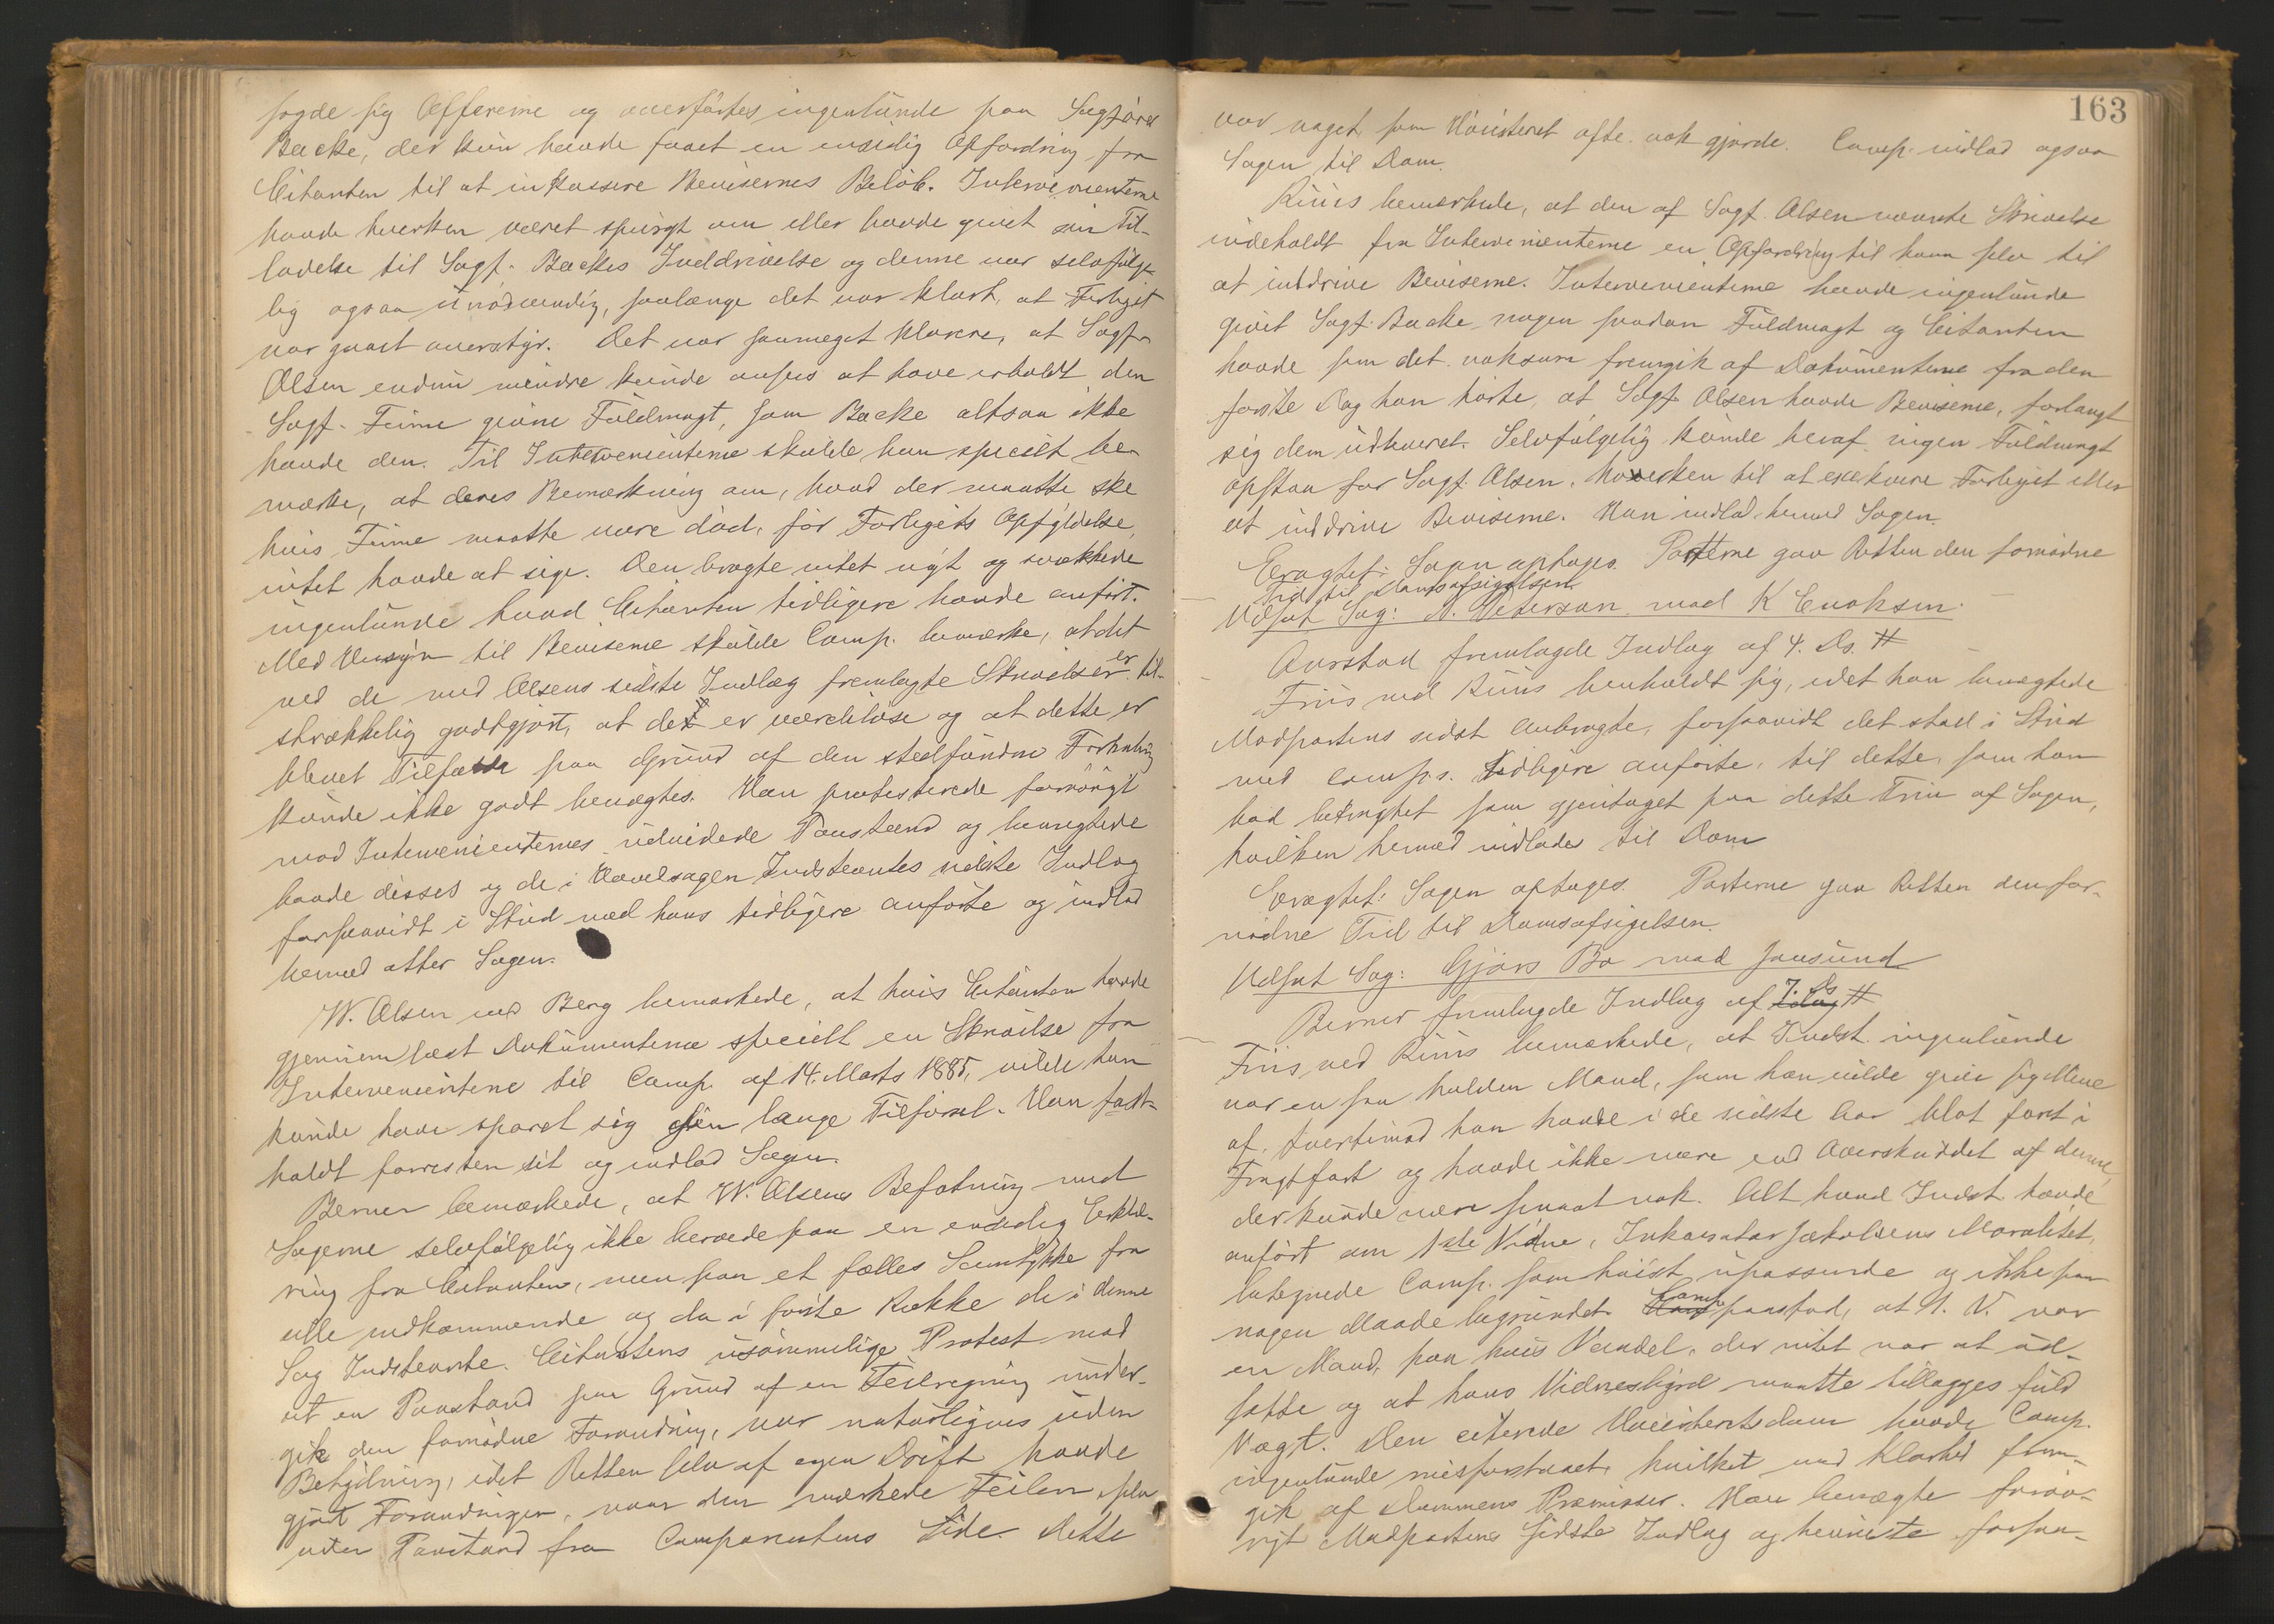 sogde sig Afferene og overførtes ingenlunde paa Sagfører
Backe, der kun havde faaet en ensidig Opfordring fra
Citanten til at inkassere Bevisernes Beløb. Intervenienterne
havde hverken været spurgt om eller havde givet sin Til-
ladelse til Sagf. Backes Inddrivelse og denne var selvfølge-
lig ogsaa unødvendig, saalænge det var klart, at Forliget
var gaaet overstyr. Det var saameget klarere, at Sagf.
Olsen endnu mindre kunde ansees at have erholdt den
Sagf. Feime givne Fuldmagt, som Backe altsaa ikke
havde den. Til Intervenienterne skulde han specielt be-
mærke, at deres Bemærkning om, hvad der maatte ske
hvis Feime maatte være død, før Forligets Opfyldelse,
intet havde at sige. Den bragte intet nyt og svækkede
ingenlunde hvad Citanten tidligere havde anført.
Med Hensyn til Beviserne skulde Comp. bemærke, at det
ved de med Olsens sidste Indlæg fremlagte Skrivelser er til-
strækkelig godtgjort, at de er værdiløse og at dette er
blevet Tilfælde paa Grund af den stedfundne Forhaling
kunde ikke godt benægtes. Han protesterede forøvrigt
mod Intervenienternes udvidede Paastand og benægtede
baade disses og de i Hovedsagen Indstevntes sidste Indlæg
forsaavidt i Strid med hans tidligere anførte og indlod
hermed atter Sagen.
W. Olsen ved Berg bemærkede, at hvis Citanten havde
gjennemlæst Dokumenterne specielt en Skrivelse fra
Intervenienterne til Comp. af 14. Marts 1885, vilde han
kunde have sparet sig sin lange Tilførsel. Han fast-
holdt forresten sit og indlod Sagen.
Berner bemærkede, at W. Olsens Befatning med
Sagerne selvfølgelig ikke beroede paa en ensidig Erklæ-
ring fra Citanten, men paa et fælles Samtykke fra
alle vedkommende og da i første Række de i denne
Sag Indstevnte. Citantens usømmelige Protest mod
at en Paastand paa Grund af en Feilregning under-
gik den fornødne Forandring, var naturligvis uden
Betydning, idet Retten selv af egen Drift havde
gjort Forandringen, naar den mærkede Feilen, selv
uden Paastand fra Comparentens Side. Dette
163
var noget som Høiesteret ofte nok gjorde. Comp. indlod ogsaa
Sagen til Dom.
Riiis bemærkede, at den af Sagf. Olsen nævnte Skrivelse
indeholdt fra Intervenienterne en Opfordring til ham selv til
at inddrive Beviserne. Intervenienterne havde ingenlunde
givet Sagf. Backe nogen saadan Fuldmagt og Citanten
havde som det noksom fremgik af Dokumenterne fra den
første Dag han hørte, at Sagf. Olsen havde Beviserne, forlangt
sig dem udleveret. Selvfølgelig kunde heraf ingen Fuldmagt
opstaa for Sagf. Olsen, hverken til at exekvere Forliget eller
at inddrive Beviserne. Han indlod hermed Sagen.
Eragtet: Sagen optages. Parterne gav Retten den fornødne
Tid til Domsafsigelsen.
Udsat Sag: A. Peterson mod K Enoksen.
Aarstad fremlagde Indlæg af 4. Ds. #
Friis ved Riiis henholdt sig, idet han benægtede
Modpartens sidst anbragte, forsaavidt det stod i Strid
med Comps. tidligere anførte, til dette, som han
bad betragtet som gjentaget paa dette Trin af Sagen,
hvilken hermed indlodes til Dom
Eragtet: Sagen optages. Parterne gav Retten den for-
nødne Tid til Domsafsigelsen.
Udsat Sag: Gjørs Bo mod Jonsund
Berner fremlagde Indlæg af 7. Ds #
Friis ved Riiis bemærkede, at Indst. ingenlunde
var en saa holden Mand, som han vilde give sig Mine
af, tvertimod han havde i de sidste Aar blot faret i
Fragtfart og havde ikke mere end Overskuddet af denne,
der kunde være smaat nok. Alt hvad Indst. havde
anført om 1ste Vidne, Inkassator Jakobsens Moralitet,
betegnede Comp. som høist upassende og ikke paa
nogen Maade begrundet. Comp. paastod, at 1. V. var
en Mand, paa hvis Vandel, der intet var at ud-
sætte og at hans Vidnesbyrd maatte tillægges fuld
Vægt. Den citerede Høiesteretsdom havde Comp.
ingenlunde misforstaaet, hvilket med Klarhed frem-
gik af Dommens Præmisser. Han benægte forøv-
rigt Modpartens sidste Indlæg og henviste forsaa-